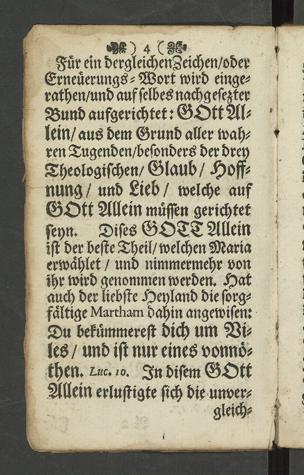 ) 4 (
Für ein dergleichen Zeichen/oder
Erneüerungs-Wort wird einge-
rathen/und auf selbes nachgesezter
Bund aufgerichtet: GOtt Al-
lein/ aus dem Grund aller wah-
ren Tugenden/besonders der drey
Theologischen/ Glaub/ Hoff-
nung/ und Lieb/ welche auf
GOtt Allein müssen gerichtet
seyn. Dises GOTT Allein
ist der beste Theil/welchen Maria
erwählet/ und nimmermehr von
ihr wird genommen werden. Hat
auch der liebste Heyland die sorg-
fältige Martham dahin angewisen:
Du bekümmerest dich um Vi-
les/ und ist nur eines vonnö-
then. Luc. 10. In disem GOtt
Allein erlustigte sich die unver-
gleich-